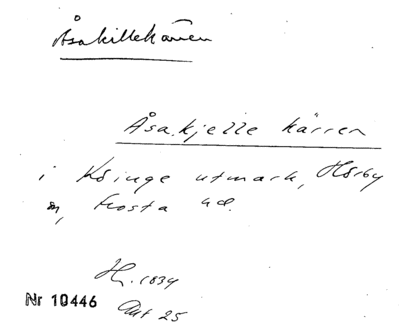 Åsakillekärren
Åsakjelle kärren
i Köinge utmark, Hörby
sn, Frosta hd.
Hy. 1834
Nr 10446
Akt 25